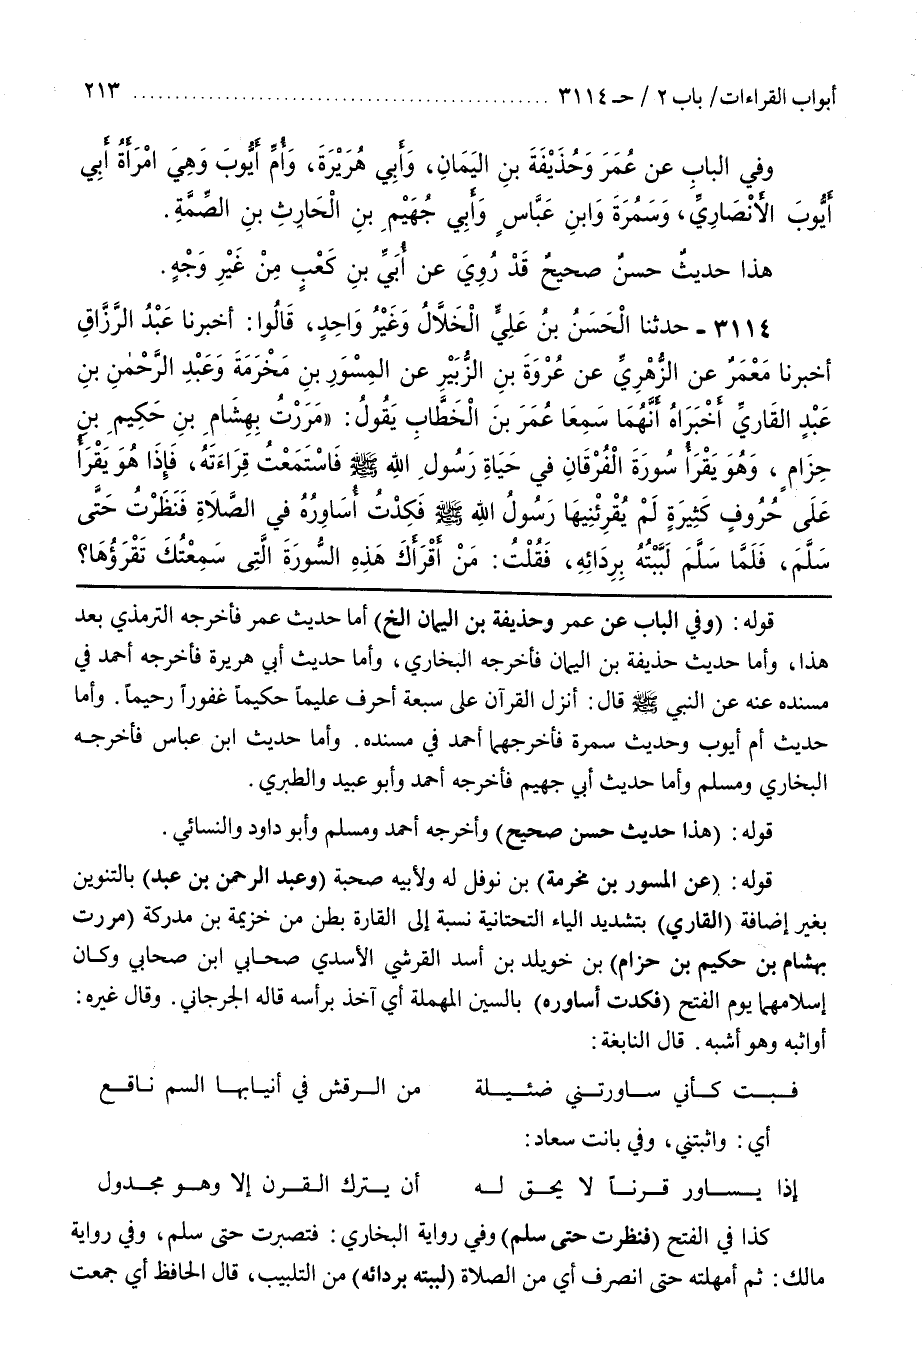 أبواب القراءات/ باب ٢ / حـ ٣١١٤ ................................................ ٢١٣
وفي الباب عن عُمَرَ وَحُذَيْفَةَ بنِ اليَمَانِ، وَأَبِي هُرَيْرَةَ، وَأُمِّ أَيُّوبَ وَهِيَ امْرَأَةُ أَبِي
أَيُّوبَ الأَنْصَارِيِّ، وَسَمُرَةَ وَابنِ عَبَّاسٍ وَأَبِي جُهَيْمِ بنِ الْحَارِثِ بنِ الصِّمَّةِ.
هذا حديثٌ حسنٌ صحيحٌ قَدْ رُوِيَ عن أُبَيِّ بنِ كَعْبٍ مِنْ غَيْرِ وَجْهٍ.
٣١١٤ - حدثنا الْحَسَنُ بنُ عَلِيٍّ الْخَلَّالُ وَغَيْرُ وَاحِدٍ، قَالُوا: أخبرنا عَبْدُ الرَّزَّاقِ
أخبرنا مَعْمَرٌ عن الزُّهْرِيِّ عن عُرْوَةَ بنِ الزُّبَيْرِ عن المِسْوَرِ بنِ مَخْرَمَةَ وَعَبْدِ الرَّحْمٰنِ بنِ
عَبْدٍ القَارِيِّ أَخْبَرَاهُ أَنَّهُمَا سَمِعَا عُمَرَ بنَ الْخَطَّابِ يَقُولُ: «مَرَرْتُ بِهِشَامِ بنِ حَكِيمِ بنِ
حِزَامٍ، وَهُوَ يَقْرَأُ سُورَةَ الْفُرْقَانِ في حَيَاةِ رَسُولِ اللهِ ﷺ فَاسْتَمَعْتُ قِرَاءَتَهُ، فَإِذَا هُوَ يَقْرَأُ
عَلَى حُرُوفٍ كَثِيرَةٍ لَمْ يُقْرِئْنِيهَا رَسُولُ اللهِ ﷺ فَكِدْتُ أُسَاوِرُهُ في الصَّلَاةِ فَنَظَرْتُ حَتَّى
سَلَّمَ، فَلَمَّا سَلَّمَ لَبَّبْتُهُ بِرِدَائِهِ، فَقُلْتُ: مَنْ أَقْرَأَكَ هَذِهِ السُّورَةَ الَّتِي سَمِعْتُكَ تَقْرَؤُهَا؟
قوله: (وفي الباب عن عمر وحذيفة بن اليمان الخ) أما حديث عمر فأخرجه الترمذي بعد
هذا، وأما حديث حذيفة بن اليمان فأخرجه البخاري، وأما حديث أبي هريرة فأخرجه أحمد في
مسنده عنه عن النبي ﷺ قال: أنزل القرآن على سبعة أحرف عليماً حكيماً غفوراً رحيماً. وأما
حديث أم أيوب وحديث سمرة فأخرجهما أحمد في مسنده. وأما حديث ابن عباس فأخرجه
البخاري ومسلم وأما حديث أبي جهيم فأخرجه أحمد وأبو عبيد والطبري.
قوله: (هذا حديث حسن صحيح) وأخرجه أحمد ومسلم وأبو داود والنسائي.
قوله: (عن المسور بن مخرمة) بن نوفل له ولأبيه صحبة (وعبد الرحمن بن عبد) بالتنوين
بغير إضافة (القاري) بتشديد الياء التحتانية نسبة إلى القارة بطن من خزيمة بن مدركة (مررت
بهشام بن حكيم بن حزام) بن خويلد بن أسد القرشي الأسدي صحابي ابن صحابي وكان
إسلامهما يوم الفتح (فكدت أساوره) بالسين المهملة أي آخذ برأسه قاله الجرجاني. وقال غيره:
أواثبه وهو أشبه. قال النابغة:
فبت كأني ساورتني ضئيلة من الرقش في أنيابها السم ناقع
أي: واثبتني، وفي بانت سعاد:
إذا يساور قرناً لا يحق له أن يترك القرن إلا وهو مجدول
كذا في الفتح (فنظرت حتى سلم) وفي رواية البخاري: فتصبرت حتى سلم، وفي رواية
مالك: ثم أمهلته حتى انصرف أي من الصلاة (لببته بردائه) من التلبيب، قال الحافظ أي جمعت